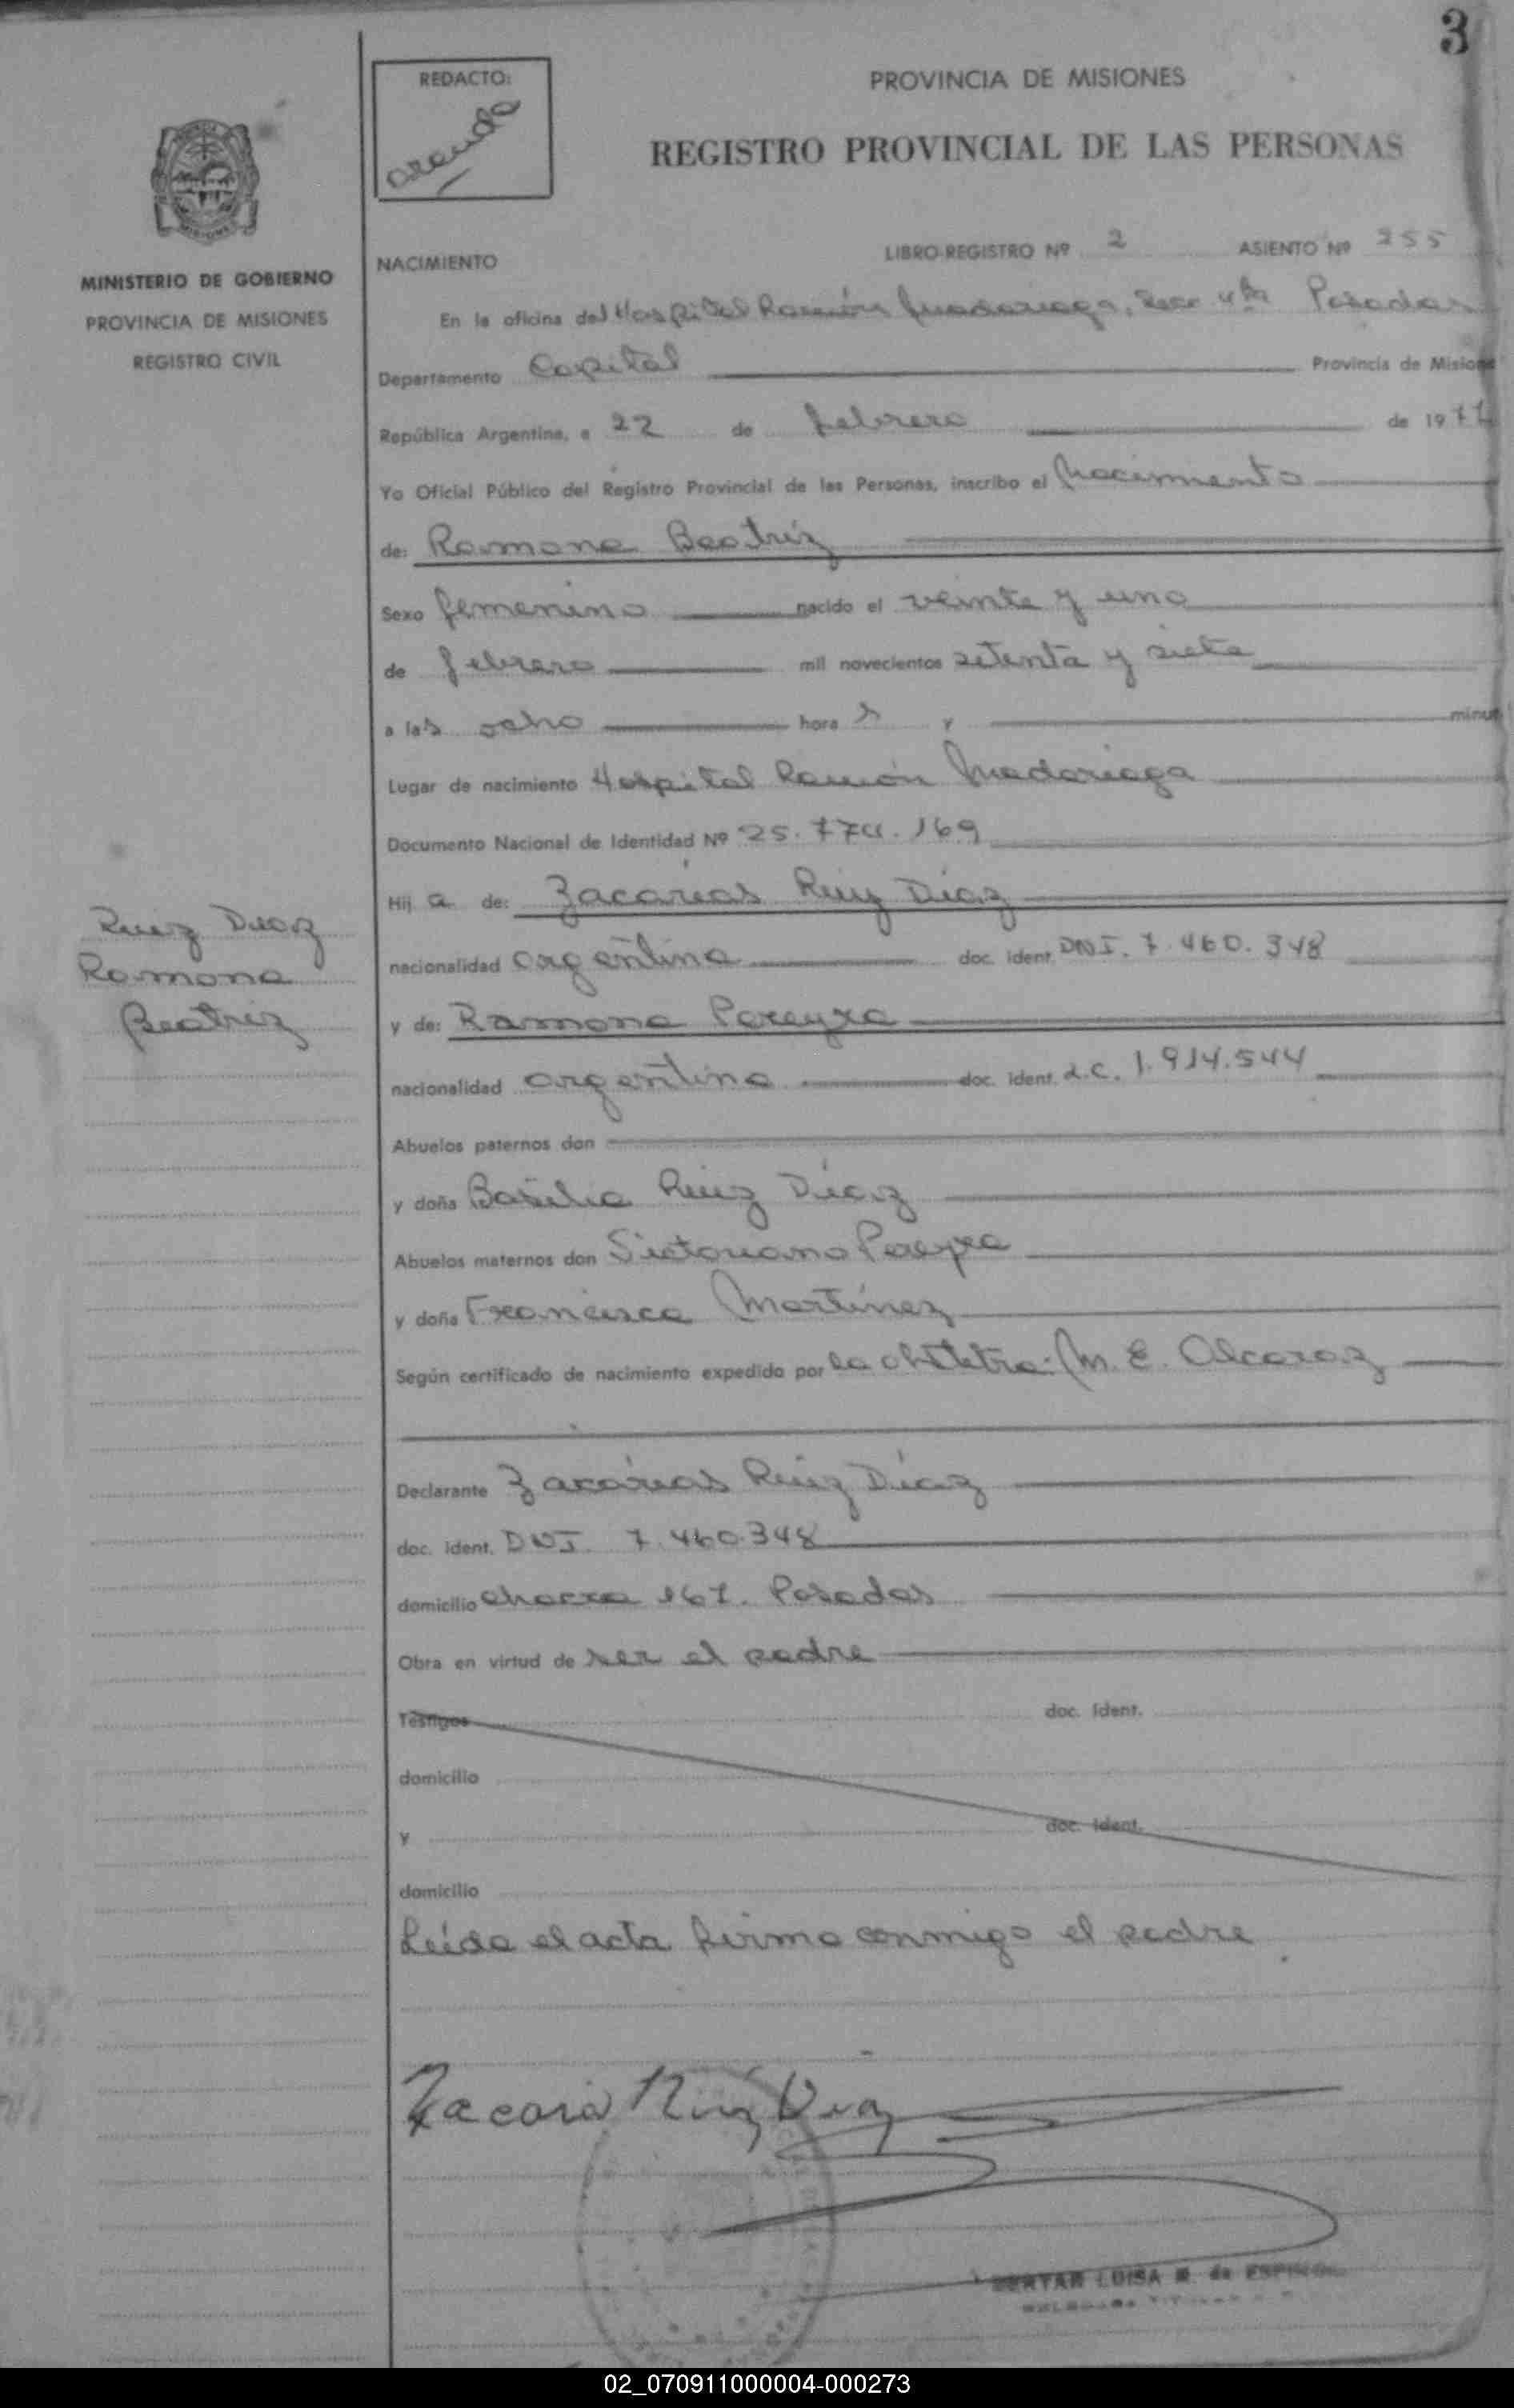 3
REDACTO:
PROVINCIA DE MISIONES
REGISTRO PROVINCIAL DE LAS PERSONAS
MISIONES
MINISTERIO DE GOBIERNO
PROVINCIA DE MISIONES
REGISTRO CIVIL
Ruiz Diaz
Ramona
Beatriz
NACIMIENTO LIBRO-REGISTRO Nº 2 ASIENTO Nº 255
En la oficina del Hospital Ramón Madariaga, Secc 4ta Posadas
Departamento Capital Provincia de Misiones
República Argentina, a 22 de febrero de 1977
Yo Oficial Público del Registro Provincial de las Personas, inscribo el Nacimiento
de: Ramona Beatriz
Sexo femenino nacido el veinte y uno
de febrero mil novecientos setenta y siete
a las ocho hora s y minut
Lugar de nacimiento Hospital Ramón Madariaga
Documento Nacional de Identidad Nº 25. 774. 169
Hij a de: Zacarías Ruiz Díaz
nacionalidad argentina doc. ident. DNI. 7.460.348
y de: Ramona Pereyra
nacionalidad argentina doc. ident. L.C. 1.914.544
Abuelos paternos don
y doña Basilia Ruiz Díaz
Abuelos maternos don Sictoriano Pereyra
y doña Francisca Martínez
Según certificado de nacimiento expedido por la obstetra: M. E. Alcaraz
Declarante Zacarías Ruiz Díaz
doc. ident. DNI. 7.460.348
domicilio chacra 167. Posadas
Obra en virtud de ser el padre
Testigos doc. ident.
domicilio
y doc. ident.
domicilio
Leída el acta firma conmigo el padre
Zacaria Ruiz Diaz
LUISA M. de
02_070911000004-000273